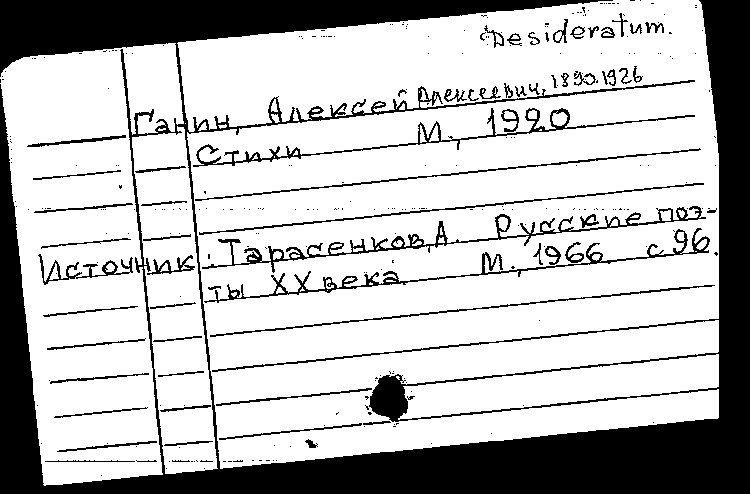 Desideratum.
Ганин, Алексей Алексеевич, 1890.1926
Стихи М., 1920
Источник: Тарасенков, А. Русские поэ-
ты XX века. М., 1966 с. 96.